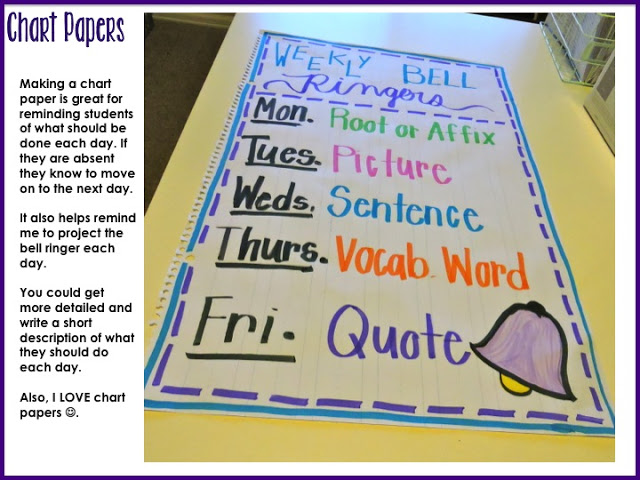 Chart Papers
Making a chart
paper is great for
reminding students
of what should be
done each day. If
they are absent
they know to move
on to the next day.
It also helps remind
me to project the
bell ringer each
day.
You could get
more detailed and
write a short
description of what
they should do
each day.
Also, I LOVE chart
papers ☺.
WEEKLY BELL
Ringers
Mon. Root or Affix
Tues. Picture
Weds. Sentence
Thurs. Vocab. Word
Fri. Quote